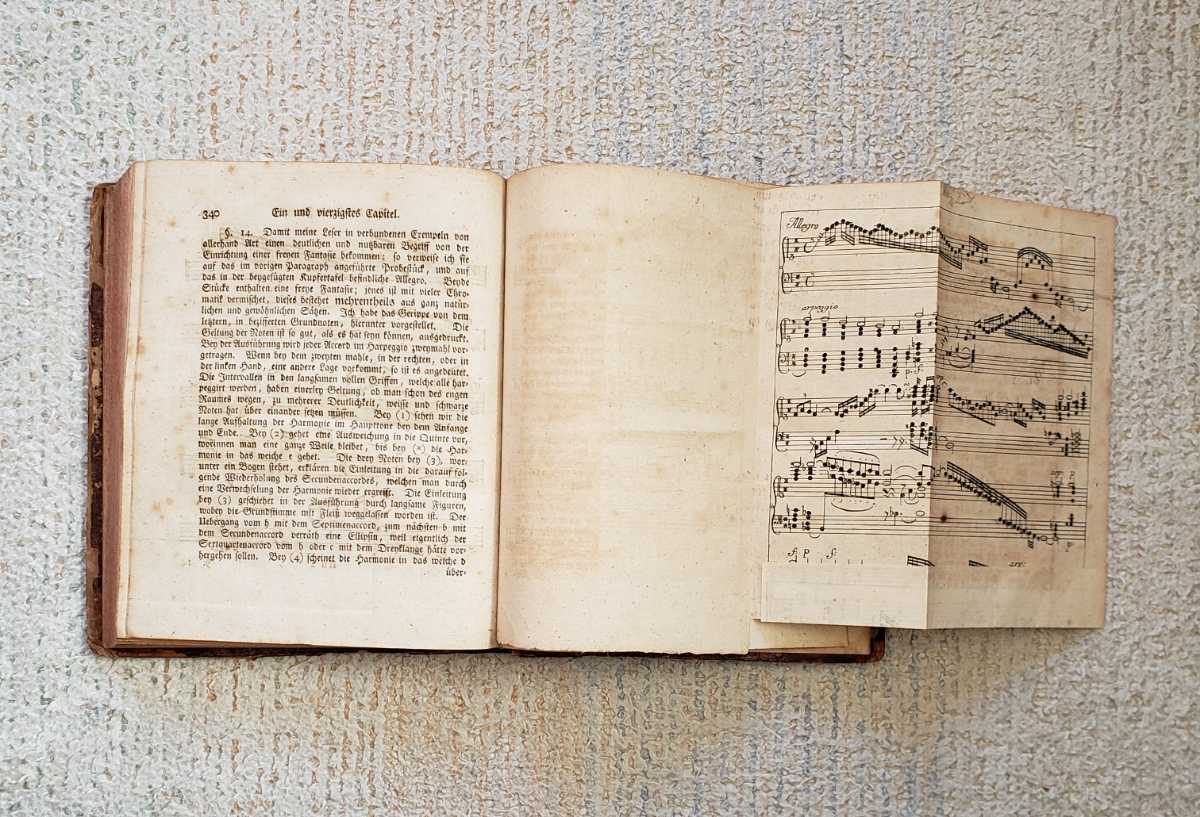 340 Ein und vierzigstes Capitel.
§. 14. Damit meine Leser in verbundenen Exempeln von
allerhand Art einen deutlichen und nutzbaren Begriff von der
Einrichtung einer freyen Fantasie bekommen; so verweise ich sie
auf das im vorigen Paragraph angeführte Probestück, und auf
das in der beygefügten Kupfertafel befindliche Allegro. Beyde
Stücke enthalten eine freye Fantasie; jenes ist mit vieler Chro-
matik vermischet, dieses bestehet mehrentheils aus ganz natür-
lichen und gewöhnlichen Sätzen. Ich habe das Gerippe vom dem
letztern, in bezifferten Grundnoten, hierunter vorgestellet. Die
Geltung der Noten ist so gut, als es hat seyn können, ausgedruckt.
Bey der Ausführung wird jeder Accord im Harpeggio zweymahl vor-
getragen. Wenn bey dem zweyten mahle, in der rechten, oder in
der linken Hand, eine andere Lage vorkommt, so ist es angedeutet.
Die Intervallen in den langsamen vollen Griffen, welche alle har-
peggirt werden, haben einerley Geltung, ob man schon des engen
Raumes wegen, zu mehrerer Deutlichkeit, weisse und schwarze
Noten hat über einander setzen müssen. Bey (1) sehen wir die
lange Aufhaltung der Harmonie im Haupttone bey dem Anfange
und Ende. Bey (2) gehet eine Ausweichung in die Quinte vor,
worinnen man eine ganze Weile bleibet, bis bey (x) die Har-
monie in das weiche e gehet. Die drey Noten bey (3), wor-
unter ein Bogen stehet, erklären die Einleitung in die darauf fol-
gende Wiederholung des Secundenaccordes, welchen man durch
eine Verwechselung der Harmonie wieder ergreift. Die Einleitung
bey (3) geschiehet in der Ausführung durch langsame Figuren,
wobey die Grundstimme mit Fleiß weggelassen worden ist. Der
Uebergang vom h mit dem Septimenaccord, zum nächsten b mit
dem Secundenaccord verräth eine Ellipsin, weil eigentlich der
Sextquartenaccord vom h oder c mit dem Dreyklange hätte vor-
hergehen sollen. Bey (4) scheinet die Harmonie in das weiche d
über-
Allegro
arpeggio
f: p f:
arp: